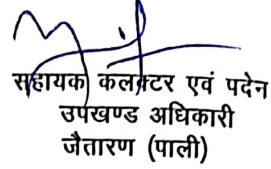 सहायक कलक्टर एवं पदेन
उपखण्ड अधिकारी
जैतारण (पाली)